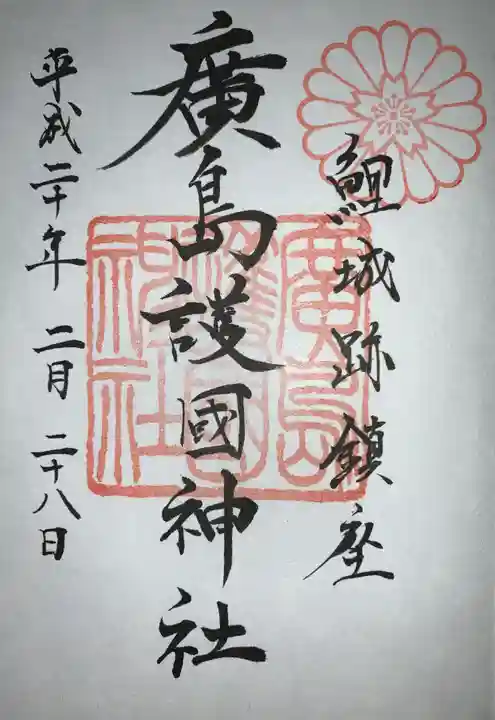 鯉城跡鎮座
廣島護國神社
平成二十年 二月 二十八日
廣島
護國
神社